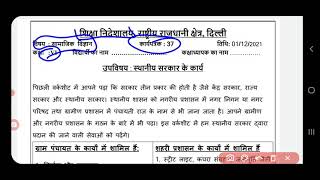 शिक्षा निदेशालय, राष्ट्रीय राजधानी क्षेत्र, दिल्ली
विषय - सामाजिक विज्ञान कार्यपत्रक : 37 तिथि: 01/12/2021
कक्षा - विद्यार्थी का नाम कक्षाध्यापक का नाम
उपविषय : स्थानीय सरकार के कार्य
पिछली वर्कशीट में आपने पढ़ा कि सरकार तीन प्रकार की होती है जैसे केंद्र सरकार, राज्य
सरकार और स्थानीय सरकार। स्थानीय शासन को नगरीय प्रशासन में नगर निगम या नगर
परिषद तथा ग्रामीण प्रशासन में पंचायती राज के नाम से भी जाना जाता है। आपने ग्रामीण
और नगरीय प्रशासन के गठन के बारे में भी पढ़ा। इस वर्कशीट में हम स्थानीय सरकार द्वारा
प्रदान की जाने वाली सेवाओं को पढ़ेंगे।
ग्राम पंचायत के कार्यों में शामिल हैं: शहरी प्रशासन के कार्यों में शामिल हैं
1. स्ट्रीट लाइट, कचरा